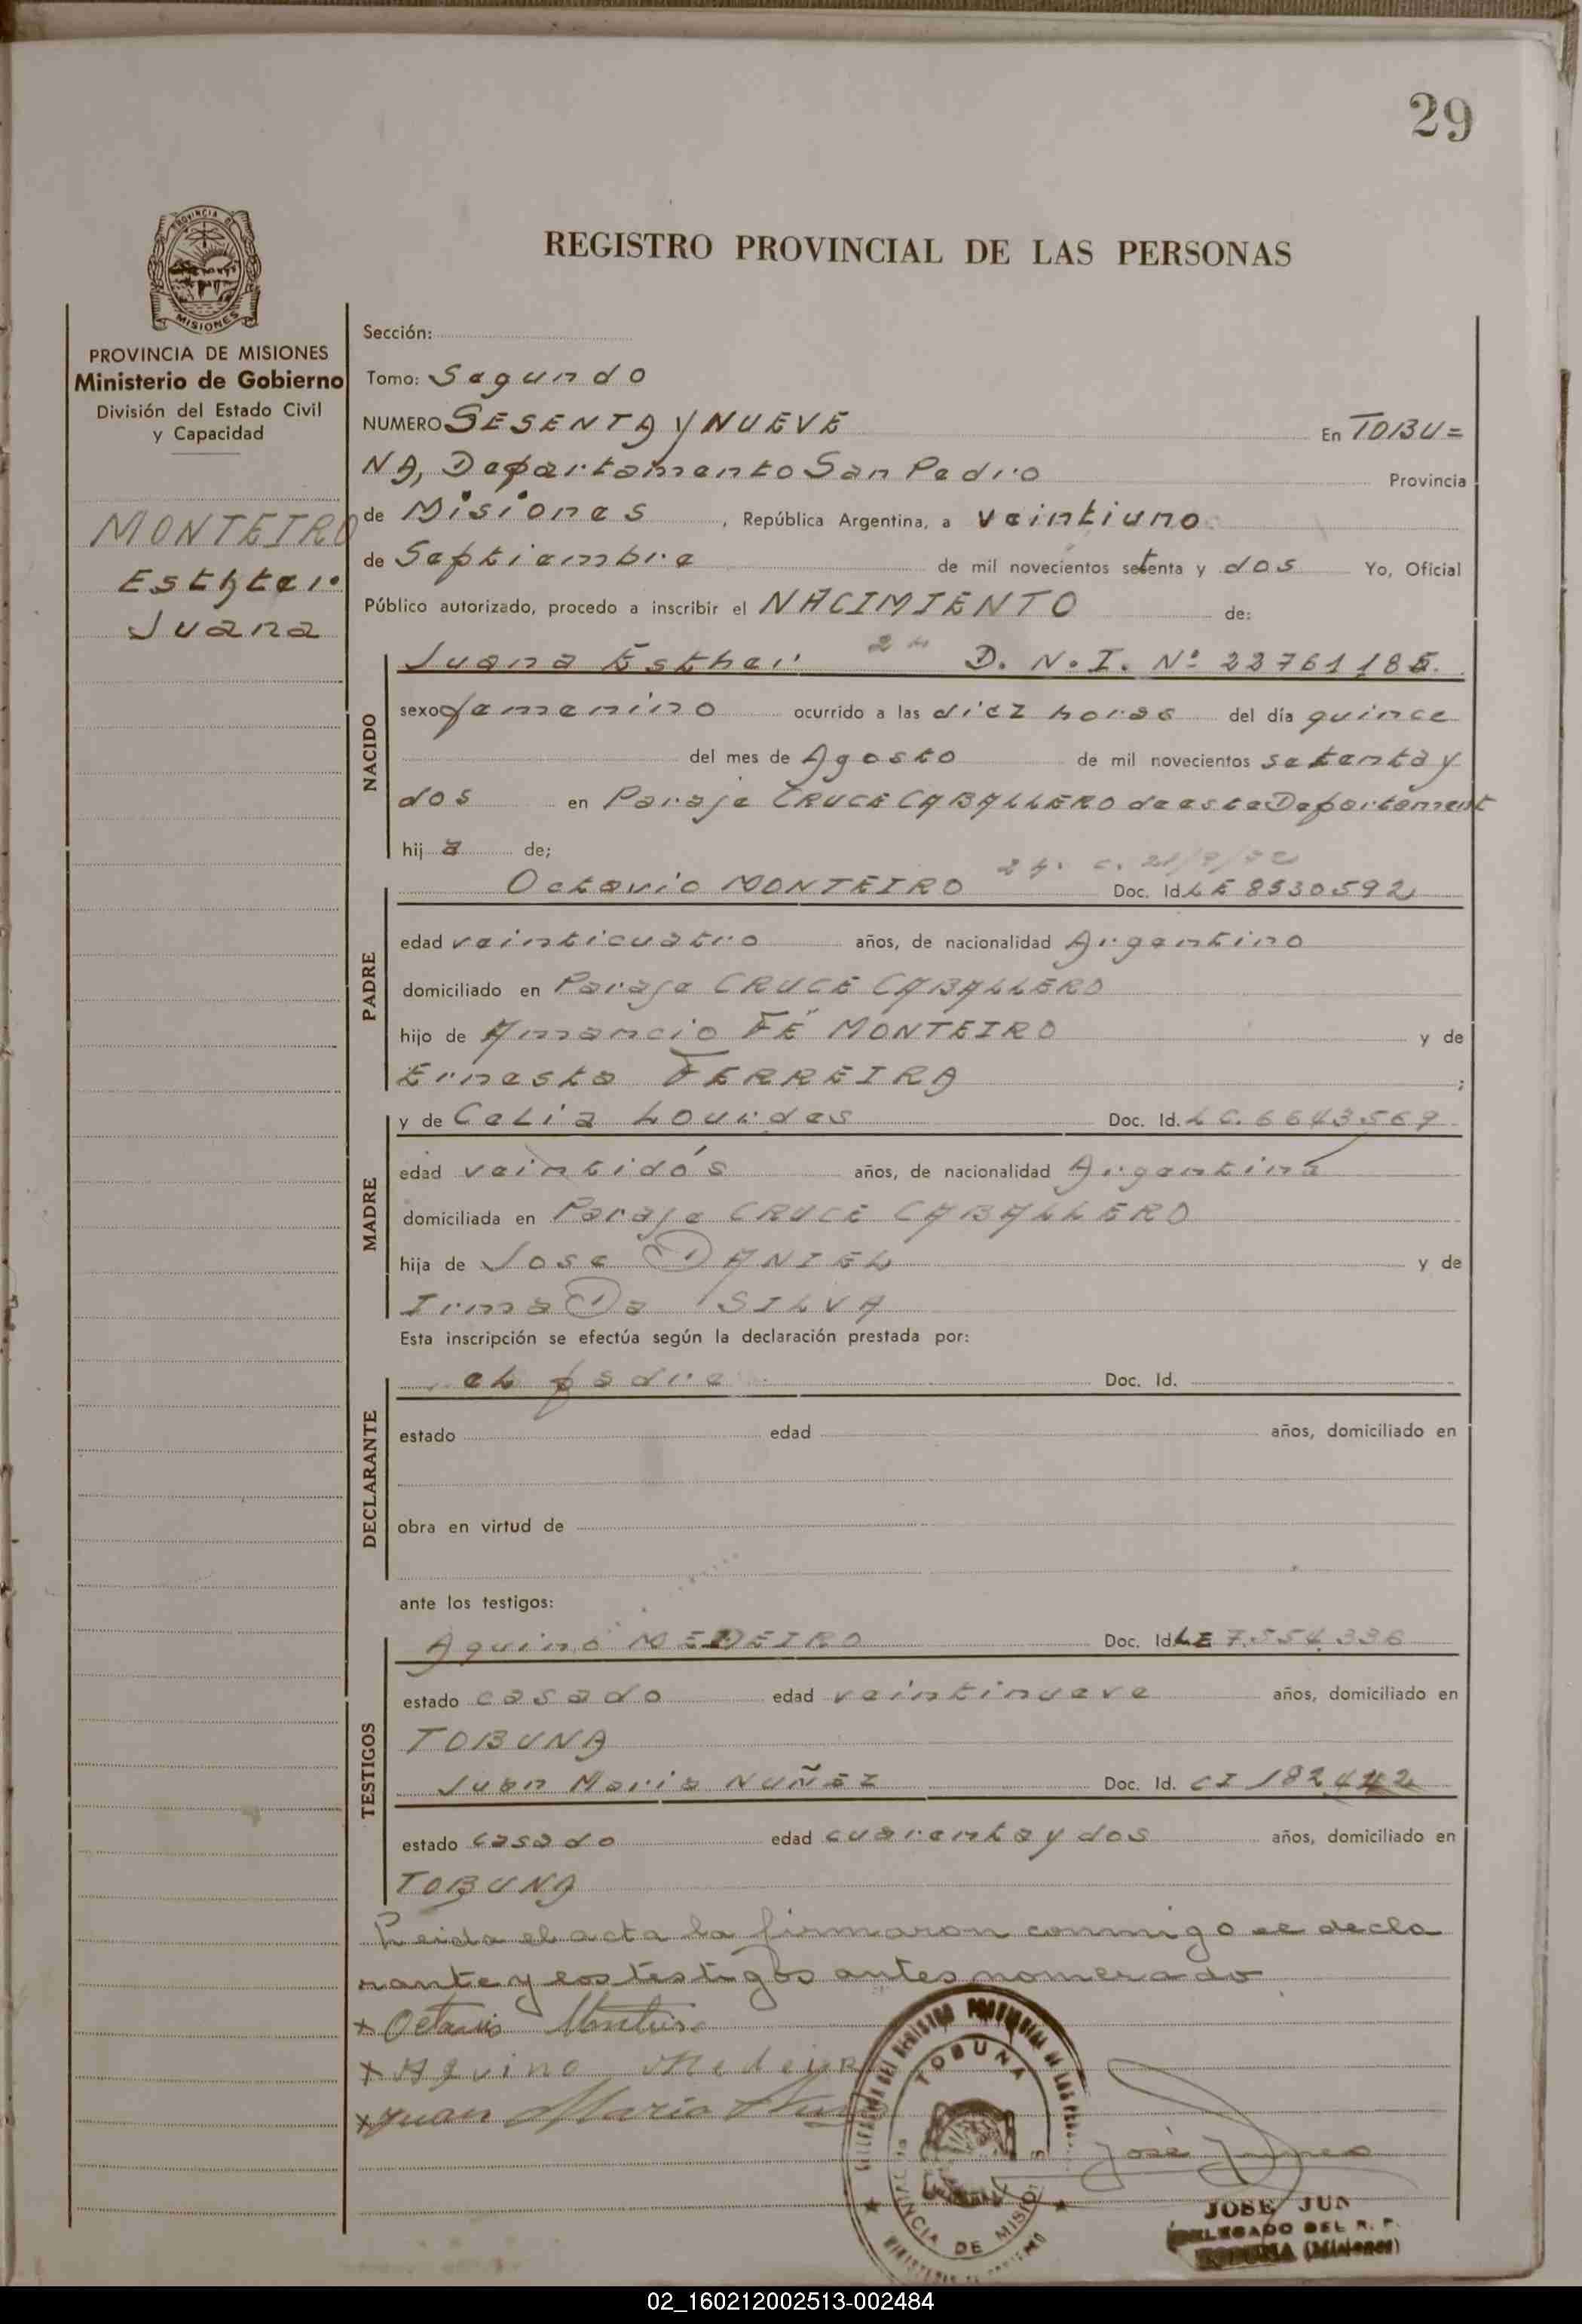 29
REGISTRO PROVINCIAL DE LAS PERSONAS
PROVINCIA DE MISIONES
Ministerio de Gobierno
División del Estado Civil
y Capacidad
MONTEIRO
Esthter
Juana
Sección:
Tomo: Segundo
NUMERO SESENTA y NUEVE En TOBU=
NA, Departamento San Pedro Provincia
de Misiones, República Argentina, a veintiuno
de Septiembre de mil novecientos setenta y dos Yo, Oficial
Público autorizado, procedo a inscribir el NACIMIENTO de:
NACIDO
Juana Esther D. N. I. Nº 22761185.
sexo femenino ocurrido a las diez horas del día quince
del mes de Agosto de mil novecientos setenta y
dos en Paraje CRUCE CABALLERO de este Departament
hij a de;
PADRE
Octavio MONTEIRO Doc. Id LE 8530592
edad veinticuatro años, de nacionalidad Argentino
domiciliado en Paraje CRUCE CABALLERO
hijo de Amancio FE MONTEIRO y de
Ernesta FERREIRA ;
MADRE
y de Celia Lourdes Doc. Id. LC. 6643569
edad veintidós años, de nacionalidad Argentina
domiciliada en Paraje CRUCE CABALLERO
hija de Jose DANIEL y de
Irma Da SILVA
Esta inscripción se efectúa según la declaración prestada por:
DECLARANTE
el padre Doc. Id.
estado edad años, domiciliado en
obra en virtud de
ante los testigos:
TESTIGOS
Aquino MEDEIRO Doc. Id LE 7.554.336
estado casado edad veintinueve años, domiciliado en
TOBUNA
Juan Maria NUÑEZ Doc. Id. CI 182.442
estado casado edad cuarenta y dos años, domiciliado en
TOBUNA
Leida el acta la firmaron conmigo el decla
rante y los testigos antes nomerado
x Octavio
x Aquino
x Juan Maria
TOBUNA
José
JOSE JUN
DELEGADO DEL R. P.
TOBUNA (Misiones)
02_160212002513-002484